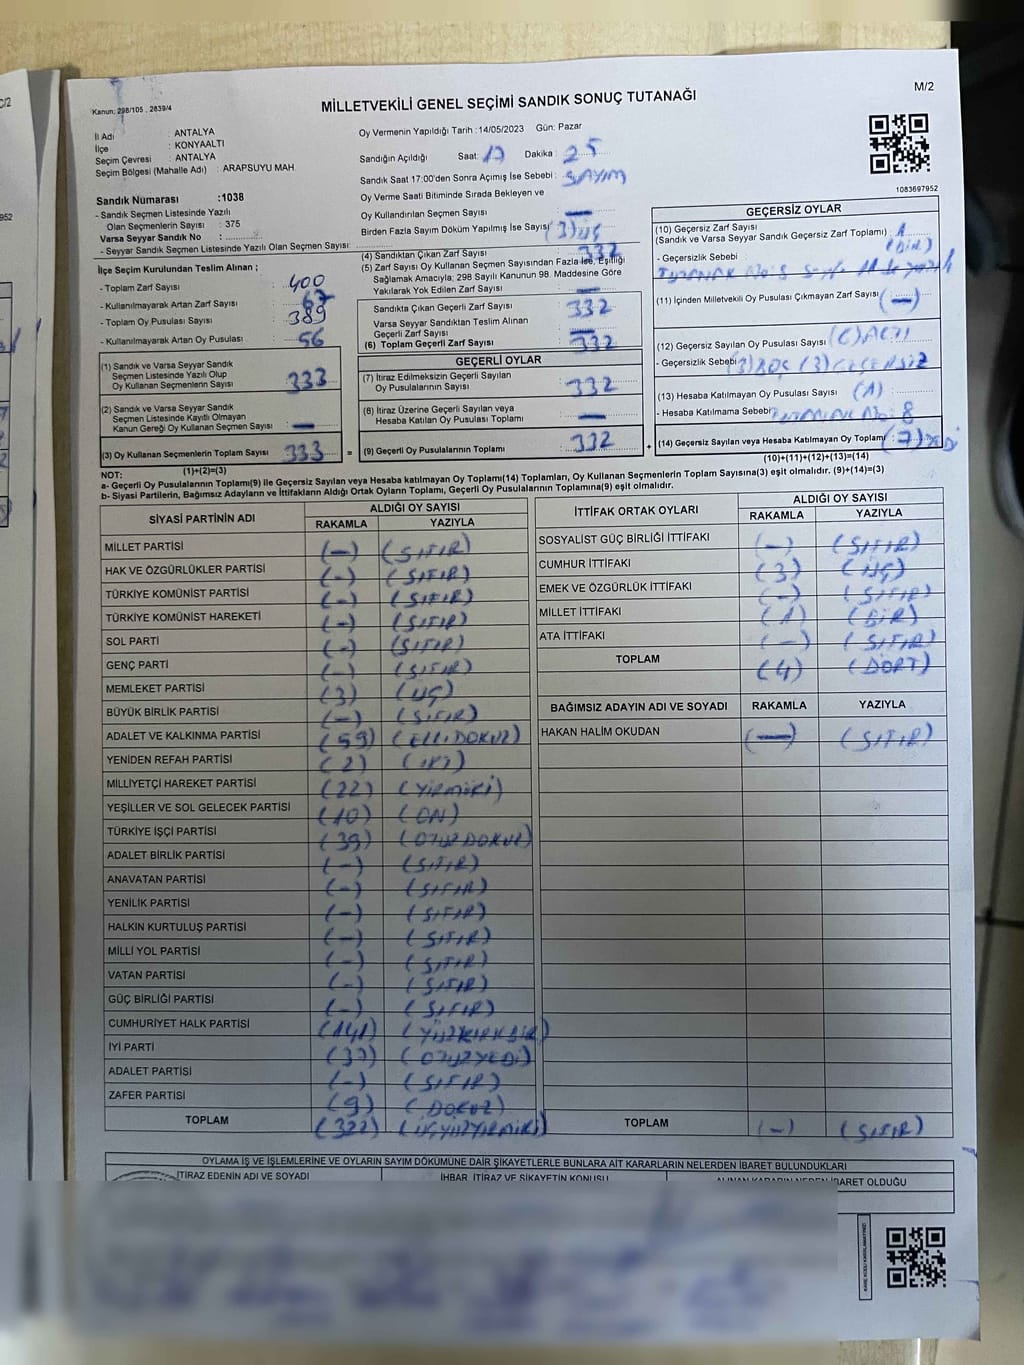 M/2
Kanun: 298/105 , 2839/4
MİLLETVEKİLİ GENEL SEÇİMİ SANDIK SONUÇ TUTANAĞI
İl Adı : ANTALYA
İlçe : KONYAALTI
Seçim Çevresi : ANTALYA
Seçim Bölgesi (Mahalle Adı) : ARAPSUYU MAH.
Oy Vermenin Yapıldığı Tarih :14/05/2023 Gün: Pazar
Sandığın Açıldığı Saat: 17 Dakika : 25
Sandık Saat 17:00'den Sonra Açımış İse Sebebi : SAYIM
Oy Verme Saati Bitiminde Sırada Bekleyen ve
Oy Kullandırılan Seçmen Sayısı : —
Birden Fazla Sayım Döküm Yapılmış İse Sayısı (3) ÜÇ
1083697952
Sandık Numarası :1038
- Sandık Seçmen Listesinde Yazılı
Olan Seçmenlerin Sayısı : 375
Varsa Seyyar Sandık No :
- Seyyar Sandık Seçmen Listesinde Yazılı Olan Seçmen Sayısı:
İlçe Seçim Kurulundan Teslim Alınan ;
- Toplam Zarf Sayısı : 400
- Kullanılmayarak Artan Zarf Sayısı : 67
- Toplam Oy Pusulası Sayısı : 389
- Kullanılmayarak Artan Oy Pusulası : 56
(1) Sandık ve Varsa Seyyar Sandık
Seçmen Listesinde Yazılı Olup
Oy Kullanan Seçmenlerin Sayısı : 333
(2) Sandık ve Varsa Seyyar Sandık
Seçmen Listesinde Kayıtlı Olmayan
Kanun Gereği Oy Kullanan Seçmen Sayısı : —
(3) Oy Kullanan Seçmenlerin Toplam Sayısı : 333
(1)+(2)=(3)
(4) Sandıktan Çıkan Zarf Sayısı : 332
(5) Zarf Sayısı Oy Kullanan Seçmen Sayısından Fazla İse, Eşitliği
Sağlamak Amacıyla; 298 Sayılı Kanunun 98. Maddesine Göre
Yakılarak Yok Edilen Zarf Sayısı : —
Sandıkta Çıkan Geçerli Zarf Sayısı : 332
Varsa Seyyar Sandıktan Teslim Alınan
Geçerli Zarf Sayısı : —
(6) Toplam Geçerli Zarf Sayısı : 332
GEÇERLİ OYLAR
(7) İtiraz Edilmeksizin Geçerli Sayılan
Oy Pusulalarının Sayısı : 332
(8) İtiraz Üzerine Geçerli Sayılan veya
Hesaba Katılan Oy Pusulası Toplamı : —
= (9) Geçerli Oy Pusulalarının Toplamı : 332
GEÇERSİZ OYLAR
(10) Geçersiz Zarf Sayısı
(Sandık ve Varsa Seyyar Sandık Geçersiz Zarf Toplamı) : 1 (BİR)
- Geçersizlik Sebebi :
TUTANAK No: 8
(11) İçinden Milletvekili Oy Pusulası Çıkmayan Zarf Sayısı : (—)
(12) Geçersiz Sayılan Oy Pusulası Sayısı : (6) ALTI
- Geçersizlik Sebebi : (3) BOŞ (3) GEÇERSİZ
(13) Hesaba Katılmayan Oy Pusulası Sayısı : (1)
- Hesaba Katılmama Sebebi : TUTANAK No: 8
+ (14) Geçersiz Sayılan veya Hesaba Katılmayan Oy Toplamı : (7) YEDİ
(10)+(11)+(12)+(13)=(14)
NOT:
a- Geçerli Oy Pusulalarının Toplamı(9) ile Geçersiz Sayılan veya Hesaba katılmayan Oy Toplamı(14) Toplamları, Oy Kullanan Seçmenlerin Toplam Sayısına(3) eşit olmalıdır. (9)+(14)=(3)
b- Siyasi Partilerin, Bağımsız Adayların ve İttifakların Aldığı Ortak Oyların Toplamı, Geçerli Oy Pusulalarının Toplamına(9) eşit olmalıdır.
SİYASİ PARTİNİN ADI ALDIĞI OY SAYISI
RAKAMLA YAZIYLA
MİLLET PARTİSİ (—) (SIFIR)
HAK VE ÖZGÜRLÜKLER PARTİSİ (—) (SIFIR)
TÜRKİYE KOMÜNİST PARTİSİ (—) (SIFIR)
TÜRKİYE KOMÜNİST HAREKETİ (—) (SIFIR)
SOL PARTİ (—) (SIFIR)
GENÇ PARTİ (—) (SIFIR)
MEMLEKET PARTİSİ (3) (ÜÇ)
BÜYÜK BİRLİK PARTİSİ (—) (SIFIR)
ADALET VE KALKINMA PARTİSİ (59) (ELLİDOKUZ)
YENİDEN REFAH PARTİSİ (2) (İKİ)
MİLLİYETÇİ HAREKET PARTİSİ (22) (YİRMİİKİ)
YEŞİLLER VE SOL GELECEK PARTİSİ (10) (ON)
TÜRKİYE İŞÇİ PARTİSİ (39) (OTUZDOKUZ)
ADALET BİRLİK PARTİSİ (—) (SIFIR)
ANAVATAN PARTİSİ (—) (SIFIR)
YENİLİK PARTİSİ (—) (SIFIR)
HALKIN KURTULUŞ PARTİSİ (—) (SIFIR)
MİLLİ YOL PARTİSİ (—) (SIFIR)
VATAN PARTİSİ (—) (SIFIR)
GÜÇ BİRLİĞİ PARTİSİ (—) (SIFIR)
CUMHURİYET HALK PARTİSİ (141) (YÜZKIRKBİR)
İYİ PARTİ (37) (OTUZYEDİ)
ADALET PARTİSİ (—) (SIFIR)
ZAFER PARTİSİ (9) (DOKUZ)
TOPLAM (322) (ÜÇYÜZYİRMİİKİ)
İTTİFAK ORTAK OYLARI ALDIĞI OY SAYISI
RAKAMLA YAZIYLA
SOSYALİST GÜÇ BİRLİĞİ İTTİFAKI (—) (SIFIR)
CUMHUR İTTİFAKI (3) (ÜÇ)
EMEK VE ÖZGÜRLÜK İTTİFAKI (—) (SIFIR)
MİLLET İTTİFAKI (1) (BİR)
ATA İTTİFAKI (—) (SIFIR)
TOPLAM (4) (DÖRT)
BAĞIMSIZ ADAYIN ADI VE SOYADI RAKAMLA YAZIYLA
HAKAN HALİM OKUDAN (—) (SIFIR)
TOPLAM (—) (SIFIR)
OYLAMA İŞ VE İŞLEMLERİNE VE OYLARIN SAYIM DÖKÜMÜNE DAİR ŞİKAYETLERLE BUNLARA AİT KARARLARIN NELERDEN İBARET BULUNDUKLARI
İTİRAZ EDENİN ADI VE SOYADI İHBAR, İTİRAZ VE ŞİKAYETİN KONUSU ALINAN KARARIN NEDEN İBARET OLDUĞU